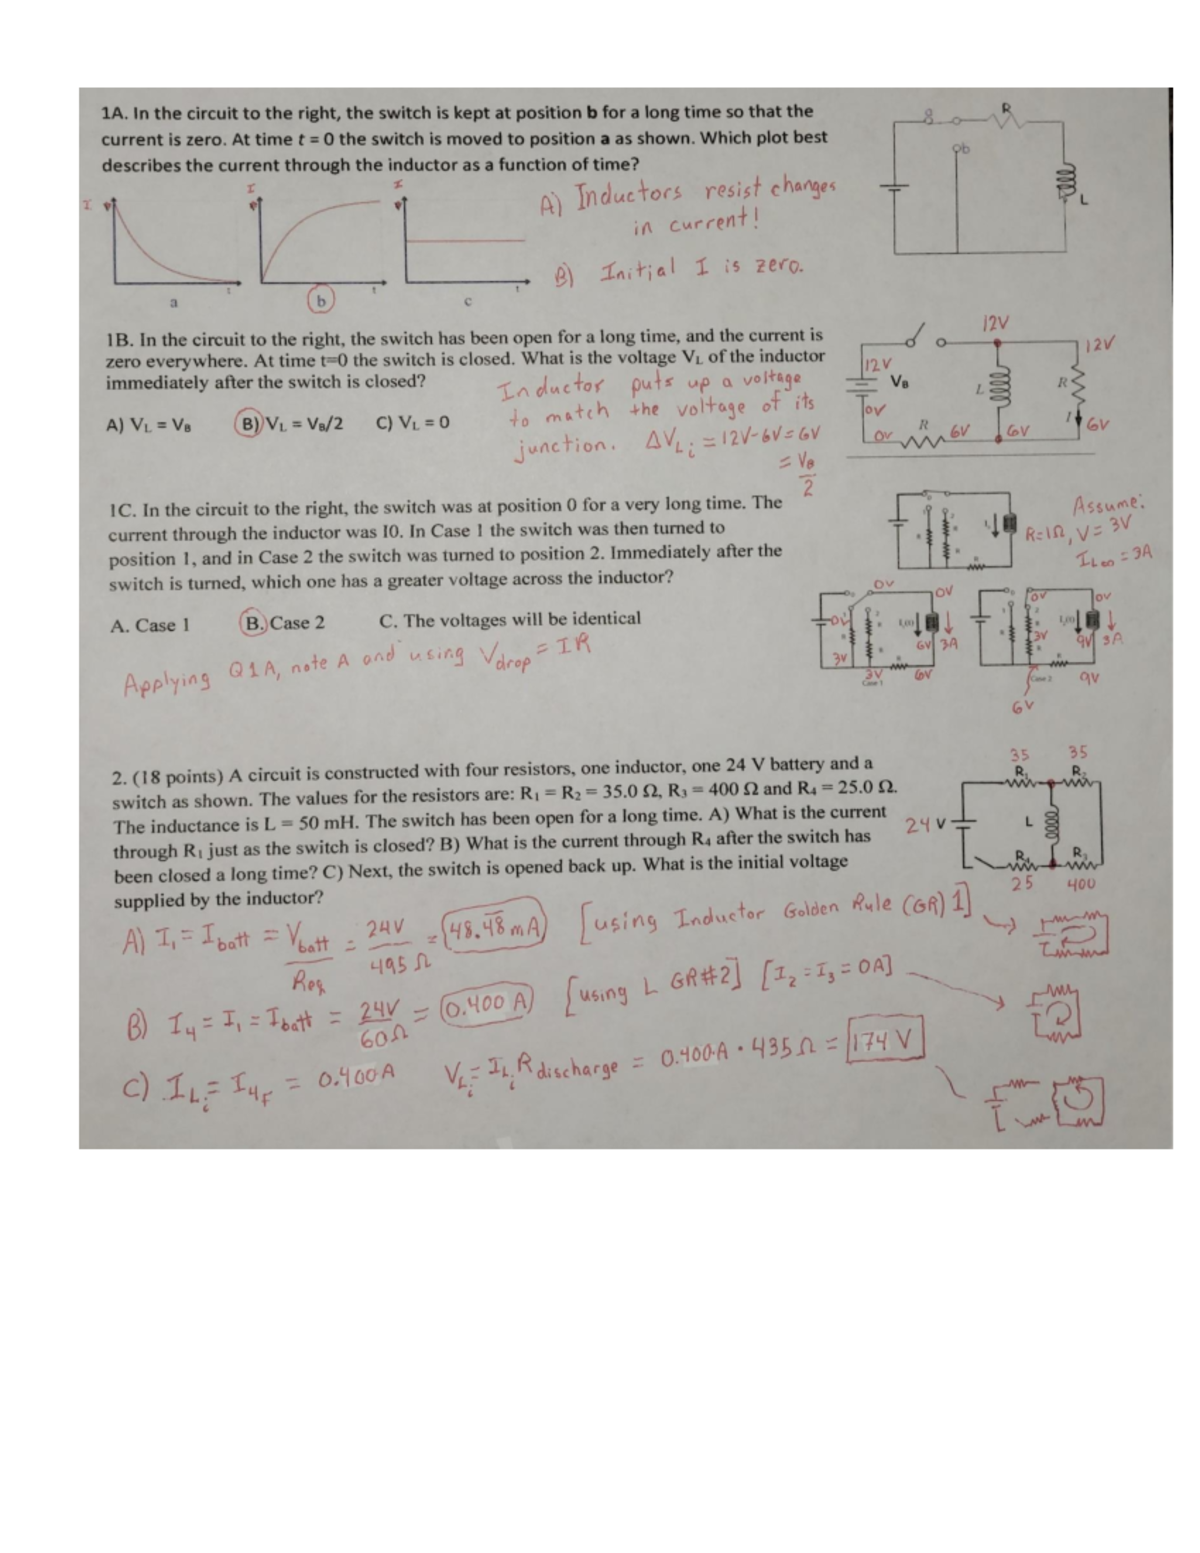 1A. In the circuit to the right, the switch is kept at position b for a long time so that the
current is zero. At time t = 0 the switch is moved to position a as shown. Which plot best
describes the current through the inductor as a function of time?
I
I
I
t
t
t
a
b
c
A) Inductors resist changes
in current!
B) Initial I is zero.
R
b
L
1B. In the circuit to the right, the switch has been open for a long time, and the current is
zero everywhere. At time t=0 the switch is closed. What is the voltage VL of the inductor
immediately after the switch is closed?
A) VL = VB
B) VL = VB/2
C) VL = 0
Inductor puts up a voltage
to match the voltage of its
junction. ΔVLi = 12V-6V = 6V
= VB
2
12V
12V
12V
VB
L
R
0V
0V
R
6V
6V
I
6V
1C. In the circuit to the right, the switch was at position 0 for a very long time. The
current through the inductor was I0. In Case 1 the switch was then turned to
position 1, and in Case 2 the switch was turned to position 2. Immediately after the
switch is turned, which one has a greater voltage across the inductor?
A. Case 1
B. Case 2
C. The voltages will be identical
Applying Q1A, note A and using Vdrop = IR
Assume:
R=1Ω, V=3V
IL∞ = 3A
0V
0V
0V
6V
3A
3V
3V
6V
Case 1
0V
0V
3V
9V
3A
Case 2
9V
6V
2. (18 points) A circuit is constructed with four resistors, one inductor, one 24 V battery and a
switch as shown. The values for the resistors are: R1 = R2 = 35.0 Ω, R3 = 400 Ω and R4 = 25.0 Ω.
The inductance is L = 50 mH. The switch has been open for a long time. A) What is the current
through R1 just as the switch is closed? B) What is the current through R4 after the switch has
been closed a long time? C) Next, the switch is opened back up. What is the initial voltage
supplied by the inductor?
35
35
R1
R2
24V
L
R4
R3
25
400
A) I1 = Ibatt = Vbatt/Req = 24V/495Ω = 48.48 mA [using Inductor Golden Rule (GR) 1]
B) I4 = I1 = Ibatt = 24V/60Ω = 0.400 A [using L GR#2] [I2 = I3 = 0A]
C) ILi = I4F = 0.400A VLi = ILi Rdischarge = 0.400A · 435Ω = 174 V